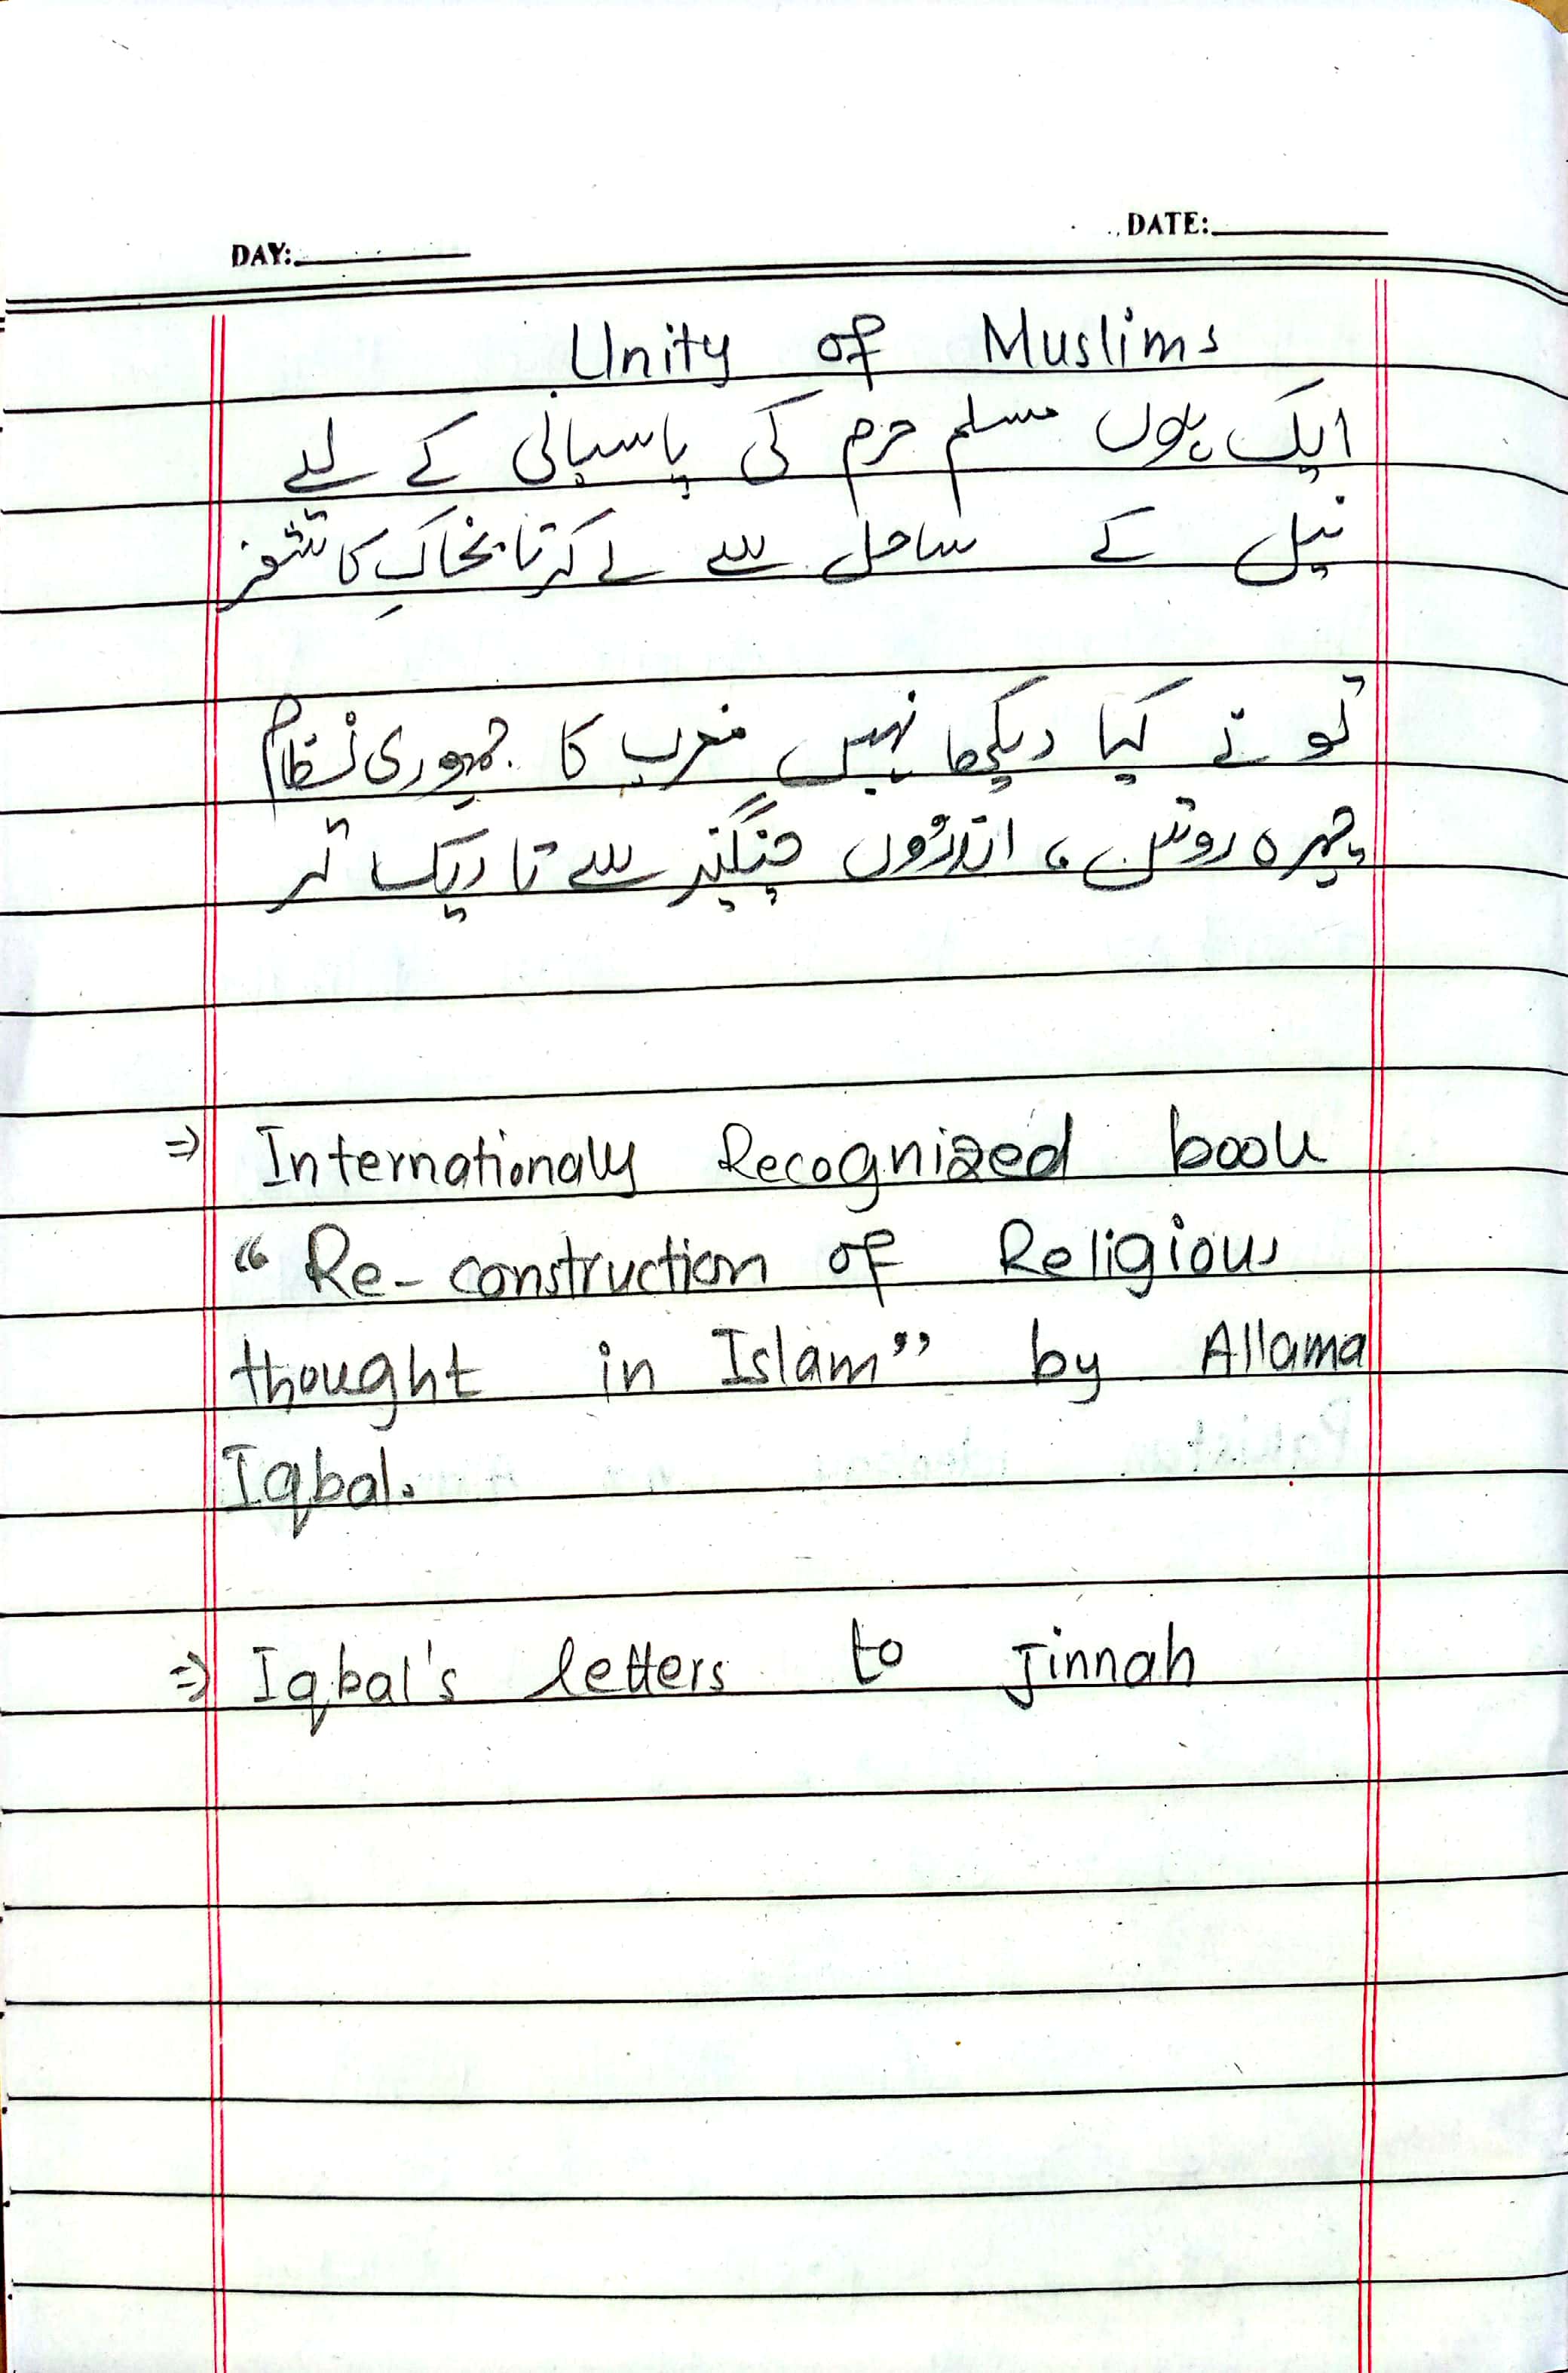 DAY:
DATE:
Unity of Muslims
ایک ہوں مسلم حرم کی پاسبانی کے لیے
نیل کے ساحل سے لے کر تا بخاکِ کاشغر
تو نے کیا دیکھا نہیں مغرب کا جمہوری نظام
چہرہ روشن، اندرُوں چنگیز سے تاریک تر
⇒ Internationaly Recognized book
“Re-construction of Religious
thought in Islam” by Allama
Iqbal.
⇒ Iqbal's letters to Jinnah